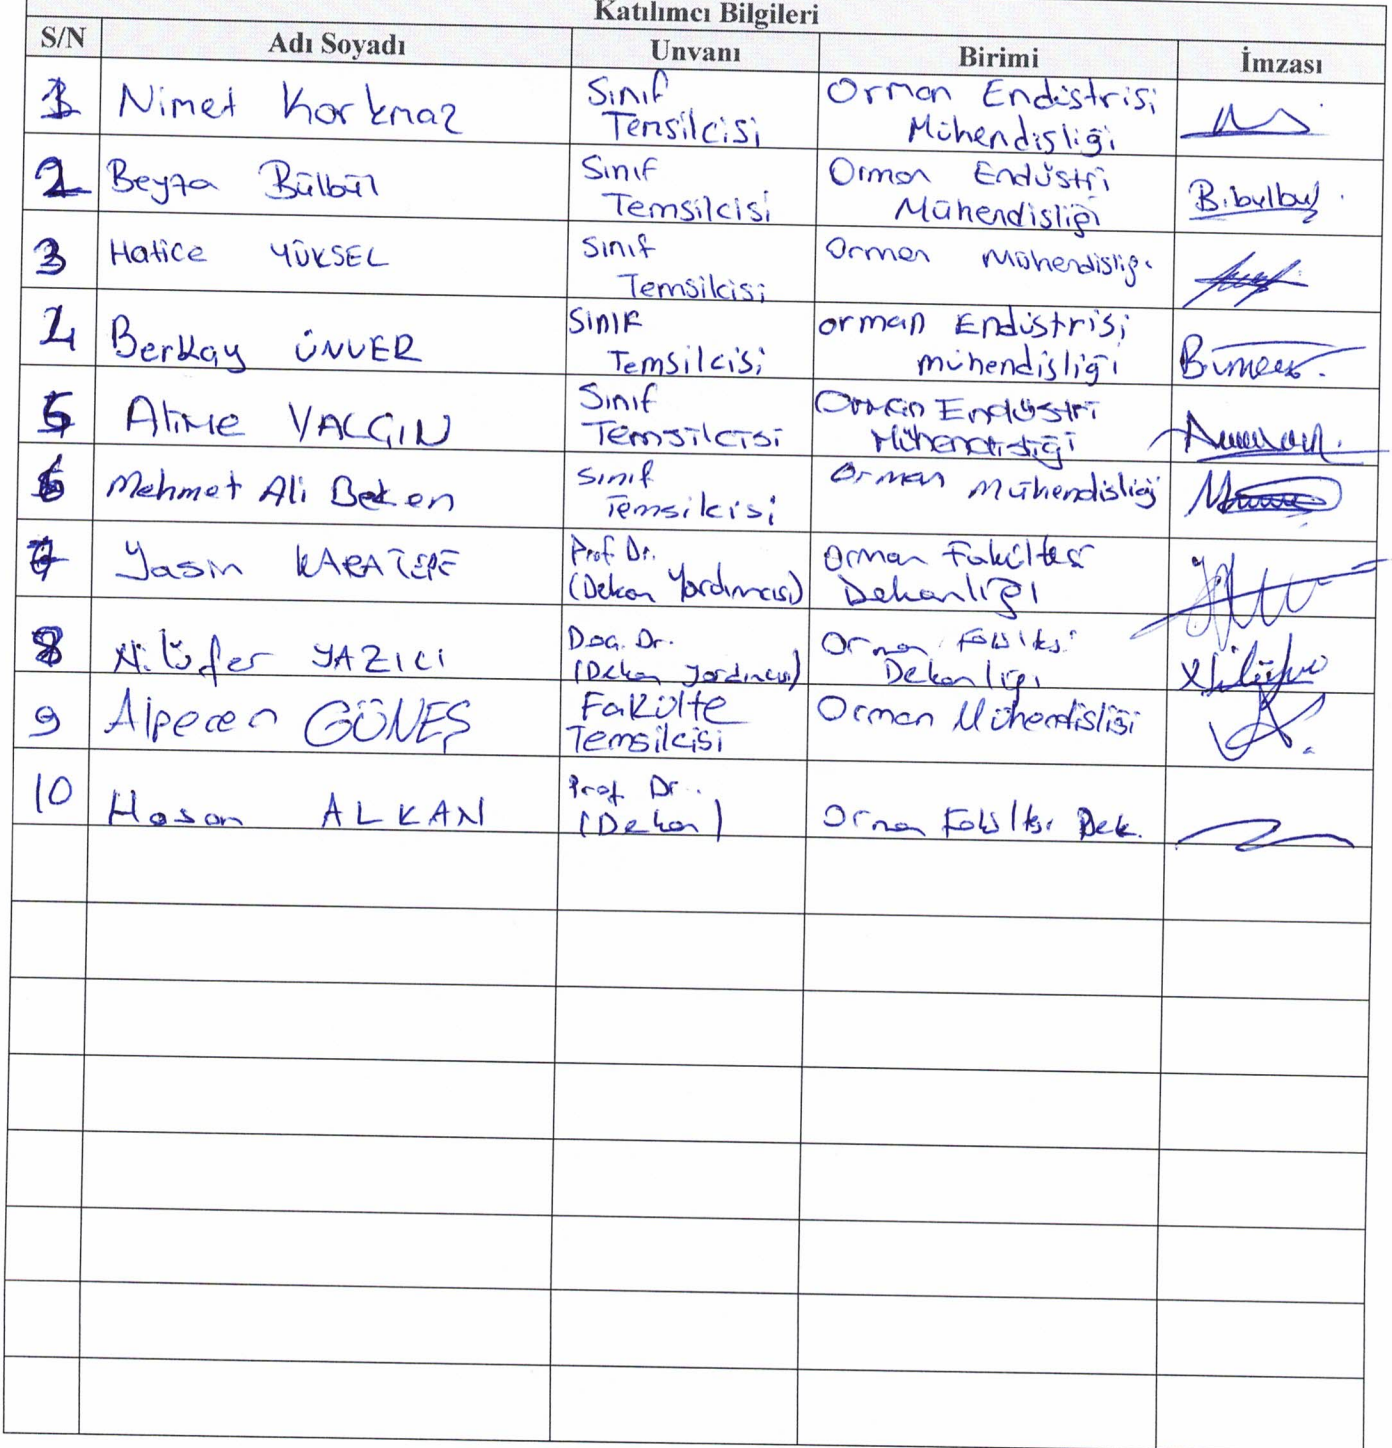 Katılımcı Bilgileri
S/N Adı Soyadı Unvanı Birimi İmzası
1 Nimet Korkmaz Sınıf Temsilcisi Orman Endüstrisi Mühendisliği
2 Beyza Bülbül Sınıf Temsilcisi Orman Endüstri Mühendisliği B.bulbul
3 Hatice YÜKSEL Sınıf Temsilcisi Orman Mühendisliği
4 Berkay ÜNVER Sınıf Temsilcisi orman Endüstrisi mühendisliği
5 YALÇIN Sınıf Temsilcisi Orman Endüstri Mühendisliği
6 Mehmet Ali Beken Sınıf Temsilcisi Orman Mühendisliği
7 Yasin KARATEPE Prof. Dr. (Dekan Yardımcısı) Orman Fakültesi Dekanlığı
8 Nilüfer YAZICI Doç. Dr. (Dekan Yardımcısı) Orman Fakültesi Dekanlığı
9 Alperen GÜNEŞ Fakülte Temsilcisi Orman Mühendisliği
10 Hasan ALKAN Prof. Dr. (Dekan) Orman Fakültesi Dek.